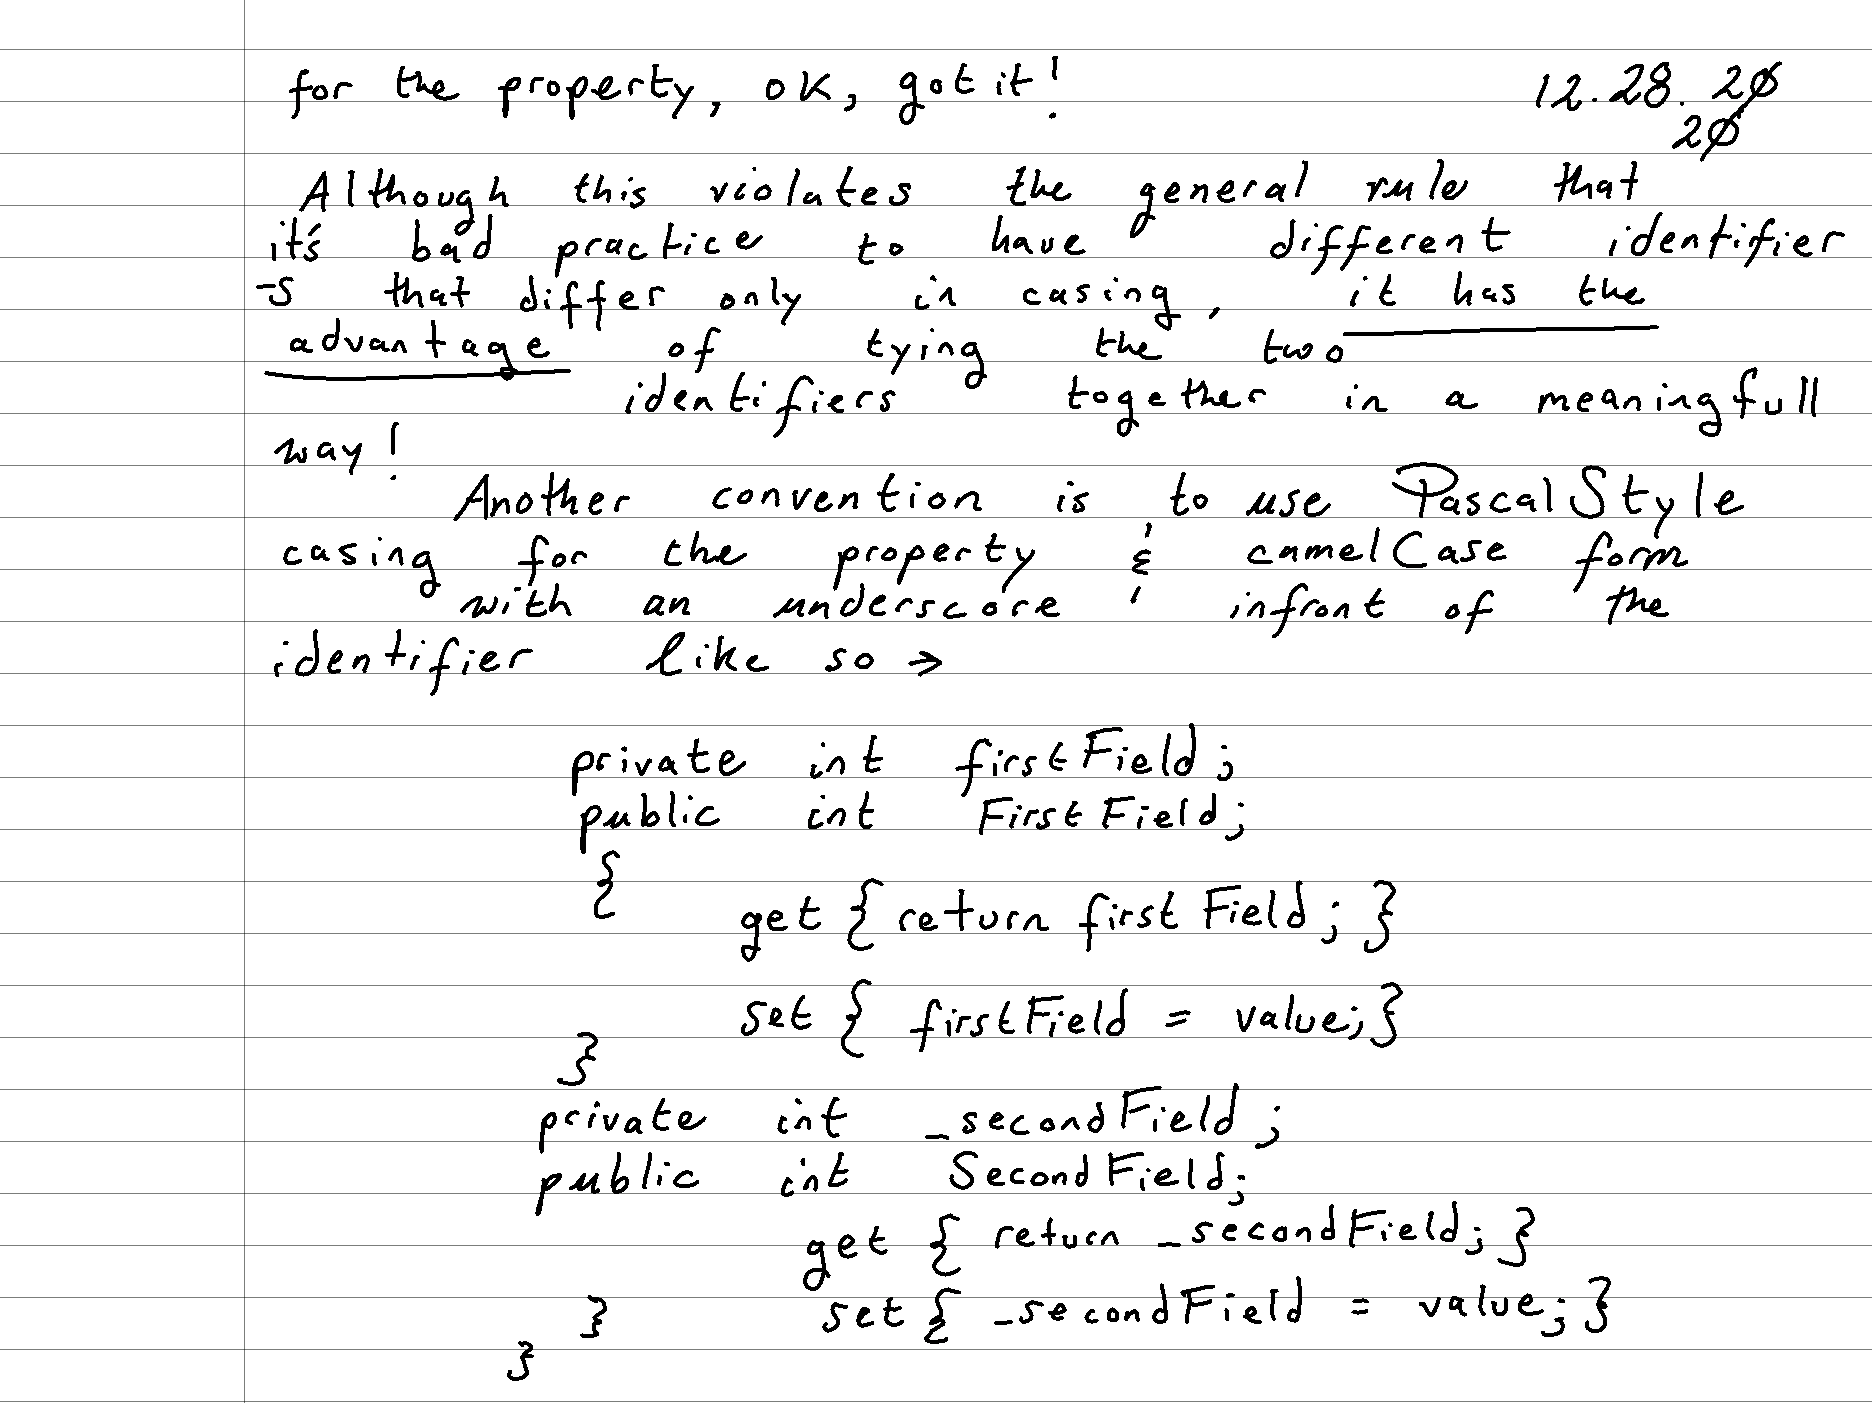 for the property, OK, got it!
12.28.20
20
Although this violates the general rule that
it's bad practice to have different identifier
-s that differ only in casing, it has the
advantage of tying the two
identifiers together in a meaningfull
way!
Another convention is to use PascalStyle
casing for the property & camelCase form
with an underscore infront of the
identifier like so →
private int firstField;
public int FirstField;
{
get { return firstField; }
set { firstField = value; }
}
private int _secondField;
public int SecondField;
get { return _secondField; }
} set { _secondField = value; }
}